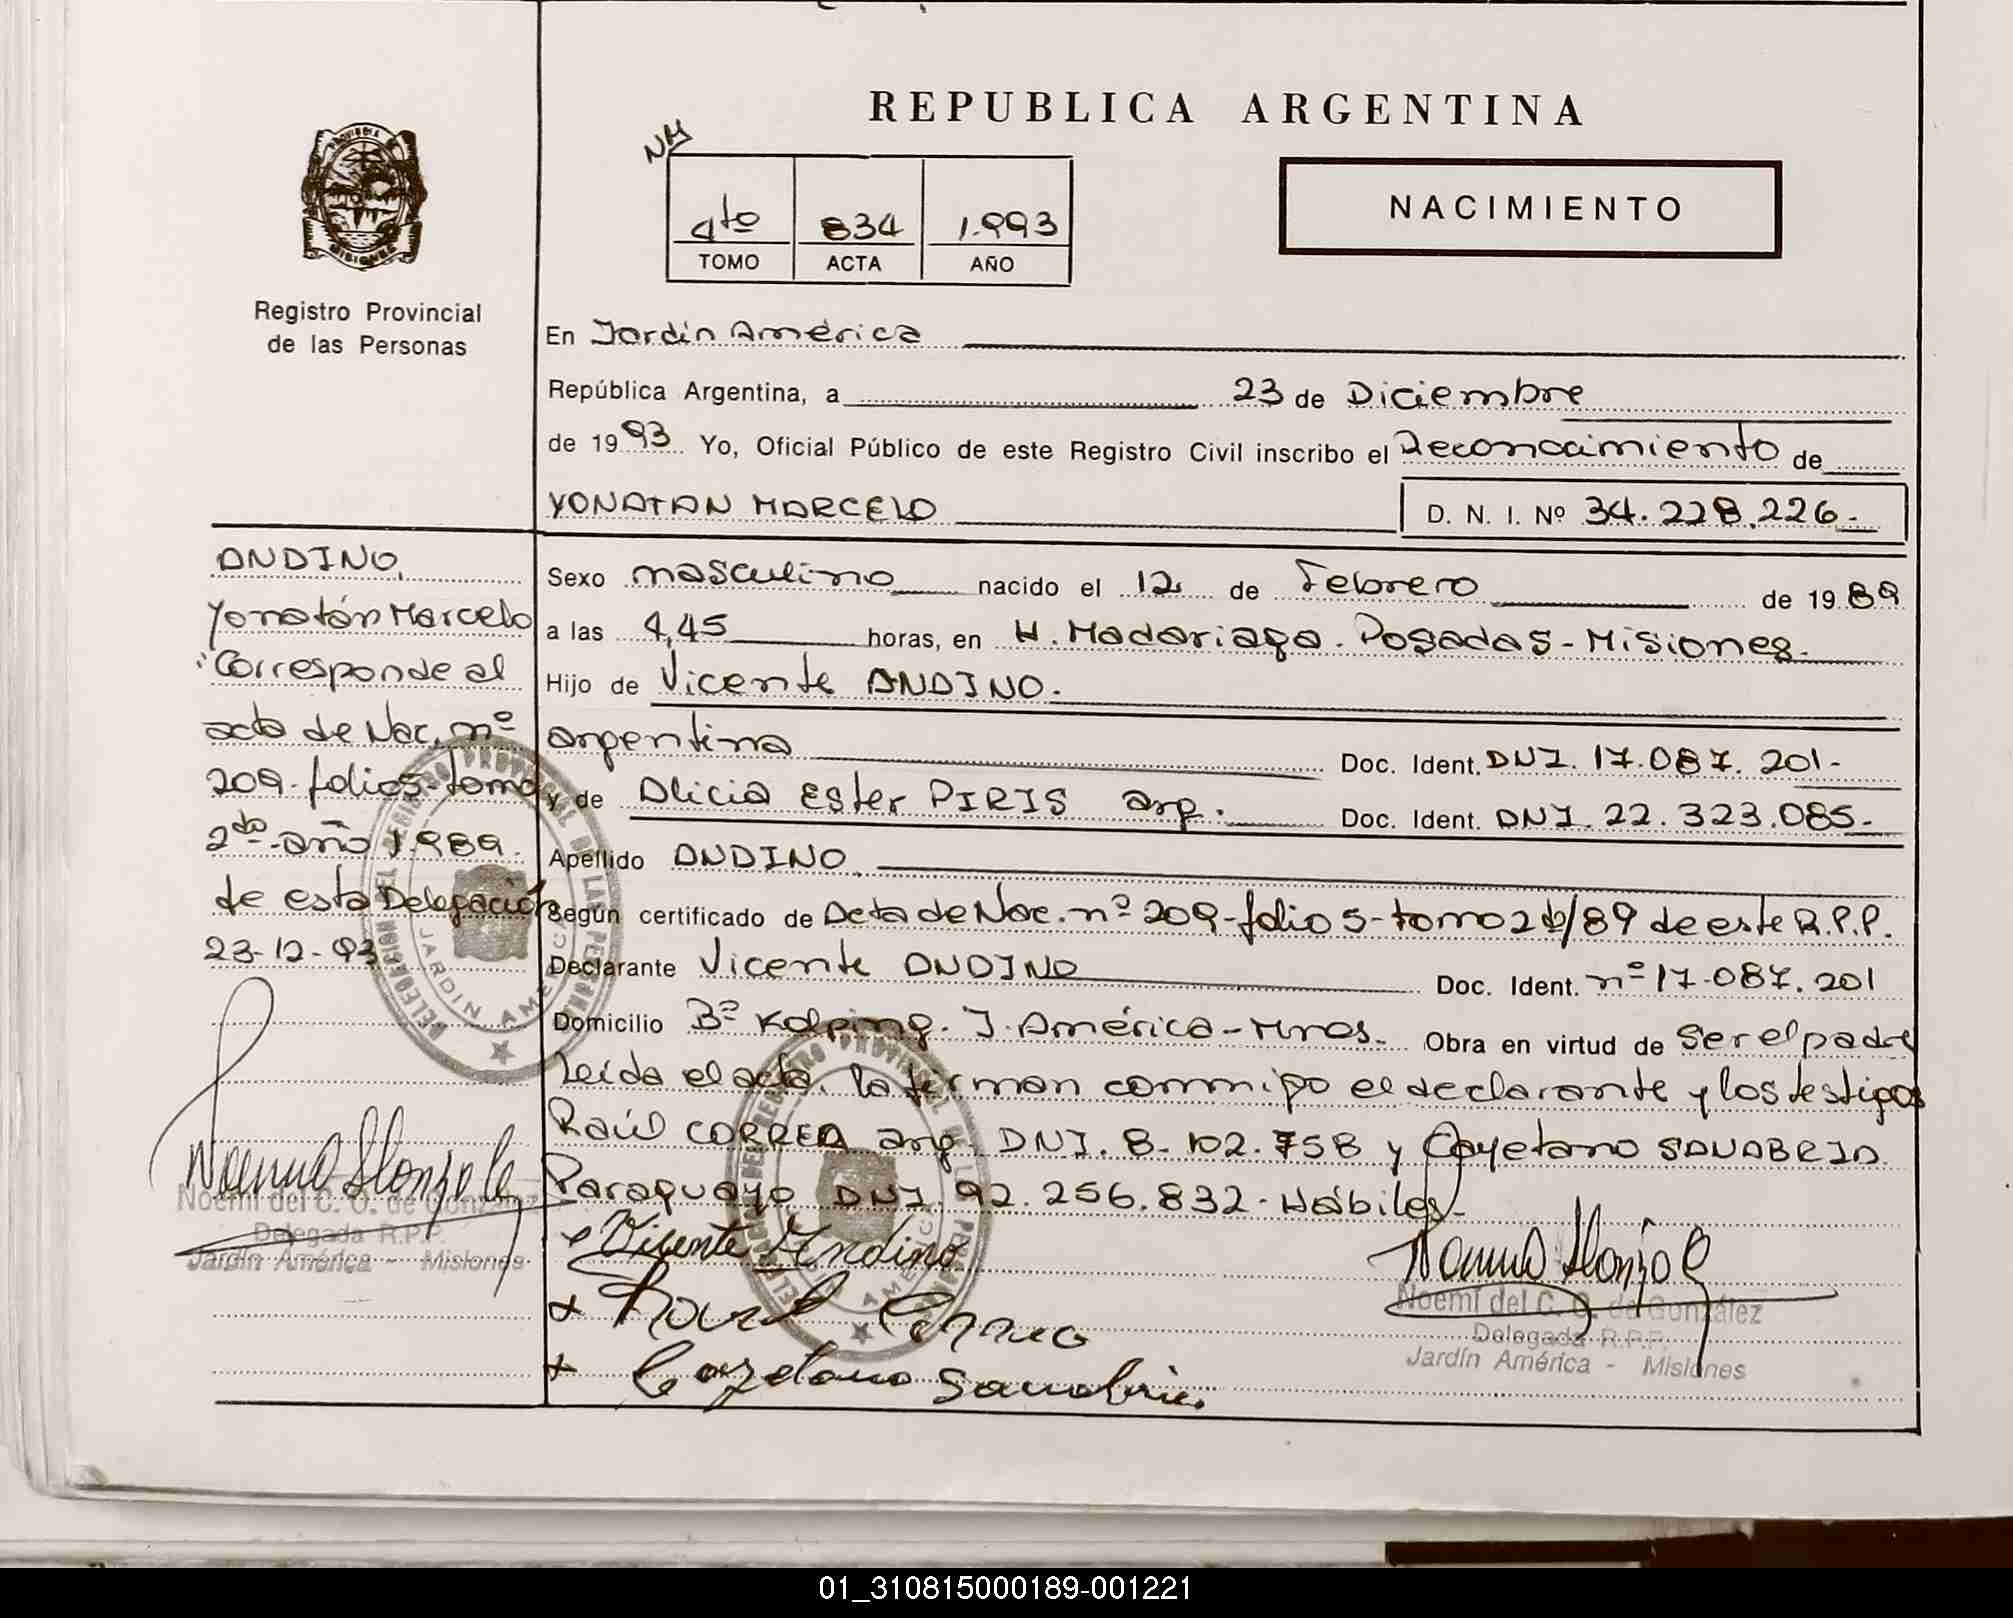 REPUBLICA ARGENTINA
NM
4to 834 1.993
TOMO ACTA AÑO
NACIMIENTO
PROVINCIA
MISIONES
Registro Provincial
de las Personas
En Jardín América
República Argentina, a 23 de Diciembre
de 1993 Yo, Oficial Público de este Registro Civil inscribo el Reconocimiento de
YONATAN MARCELO D. N. I. Nº 34.228.226-
Sexo masculino nacido el 12 de Febrero de 1989
a las 4,45 horas, en H. Madariaga. Posadas-Misiones.
Hijo de Vicente ANDINO.
argentina Doc. Ident. DNI. 17.087.201-
y de Alicia Ester PIRIS arg. Doc. Ident. DNI. 22.323.085-
Apellido ANDINO
Según certificado de Acta de Nac. nº 209-folio 5-tomo 2do/89 de este R.P.P.
Declarante Vicente ANDINO Doc. Ident. nº 17.087.201
Domicilio Bº Kolping. J. América-Mnes. Obra en virtud de Ser el padre
Leída el acta, la firman conmigo el declarante y los testigos
Raúl CORREA arg. DNI. 8.102.758 y Cayetano SANABRIA
Paraguayo DNI 92.256.832- Hábiles-
Vicente Andino
Raul Correa
Cayetano Sanabria
Noemí Alonzo
Noemí del C. O. de González
Delegada R.P.P.
Jardín América - Misiones
ANDINO,
Yonatán Marcelo
Corresponde al
acta de Nac. nº
209-folio 5-tomo
2do-año 1.989.
de esta Delegación
23-12-93
Noemí Alonzo
Noemí del C. O. de González
Delegada R.P.P.
Jardín América - Misiones
JARDIN AMERICA
01_310815000189-001221